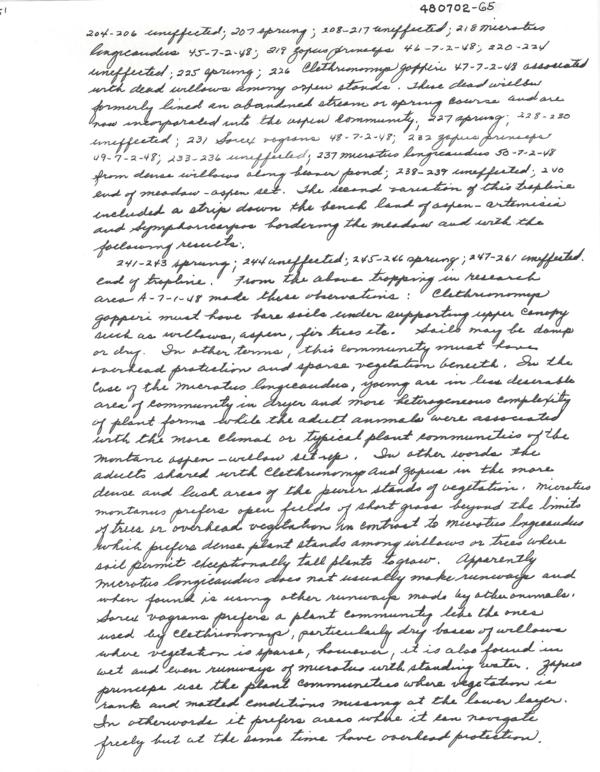 480702-65
204-206 uneffected; 207 sprung; 208-217 uneffected; 218 microtus
longicaudus 45-7-2-48; 219 zapus princeps 46-7-2-48; 220-224
uneffected; 225 sprung; 226 Clethrionomys gapperi 47-7-2-48 associated
with dead willows among aspen stands. These dead willow
formerly lined an abandoned stream or spring course and are
now incorporated into the aspen community. 227 sprung; 228-230
uneffected; 231 Sorex vagrans 48-7-2-48; 232 zapus princeps
49-7-2-48; 233-236 uneffected; 237 microtus longicaudus 50-7-2-48
from dense willows along beaver pond; 238-239 uneffected; 240
end of meadow-aspen set. The second variation of this trapline
included a strip down the bench land of aspen-artemisia
and Symphoricarpos bordering the meadow and with the
following results.
241-243 sprung; 244 uneffected; 245-246 sprung; 247-261 uneffected.
end of trapline. From the above trapping in research
area A-7-1-48 made these observations: Clethrionomys
gapperi must have bare soils under supporting upper canopy
such as willows, aspen, fir trees etc. Soils may be damp
or dry. In other terms, this community must have
overhead protection and sparse vegetation beneath. In the
case of the microtus longicaudus, young are in less desirable
area of community in dryer and more heterogeneous complexity
of plant forms while the adult animals were associated
with the more climax or typical plant communities of the
montane aspen-willow set-up. In other words the
adults shared with Clethrionomys and Zapus in the more
dense and lush areas of the purer stands of vegetation. Microtus
montanus prefers open fields of short grass beyond the limits
of trees or overhead vegetation in contrast to microtus longicaudus
which prefers dense plant stands among willows or trees where
soil permit exceptionally tall plants to grow. Apparently
microtus longicaudus does not usually make runways and
when found is using other runways made by other animals.
Sorex vagrans prefers a plant community like the ones
used by Clethrionomys, particularly dry bases of willows
where vegetation is sparse, however, it is also found in
wet and even runways of microtus with standing water. Zapus
princeps use the plant communities where vegetation is
rank and matted conditions missing at the lower layer.
In otherwords it prefers areas where it can navigate
freely but at the same time have overhead protection.